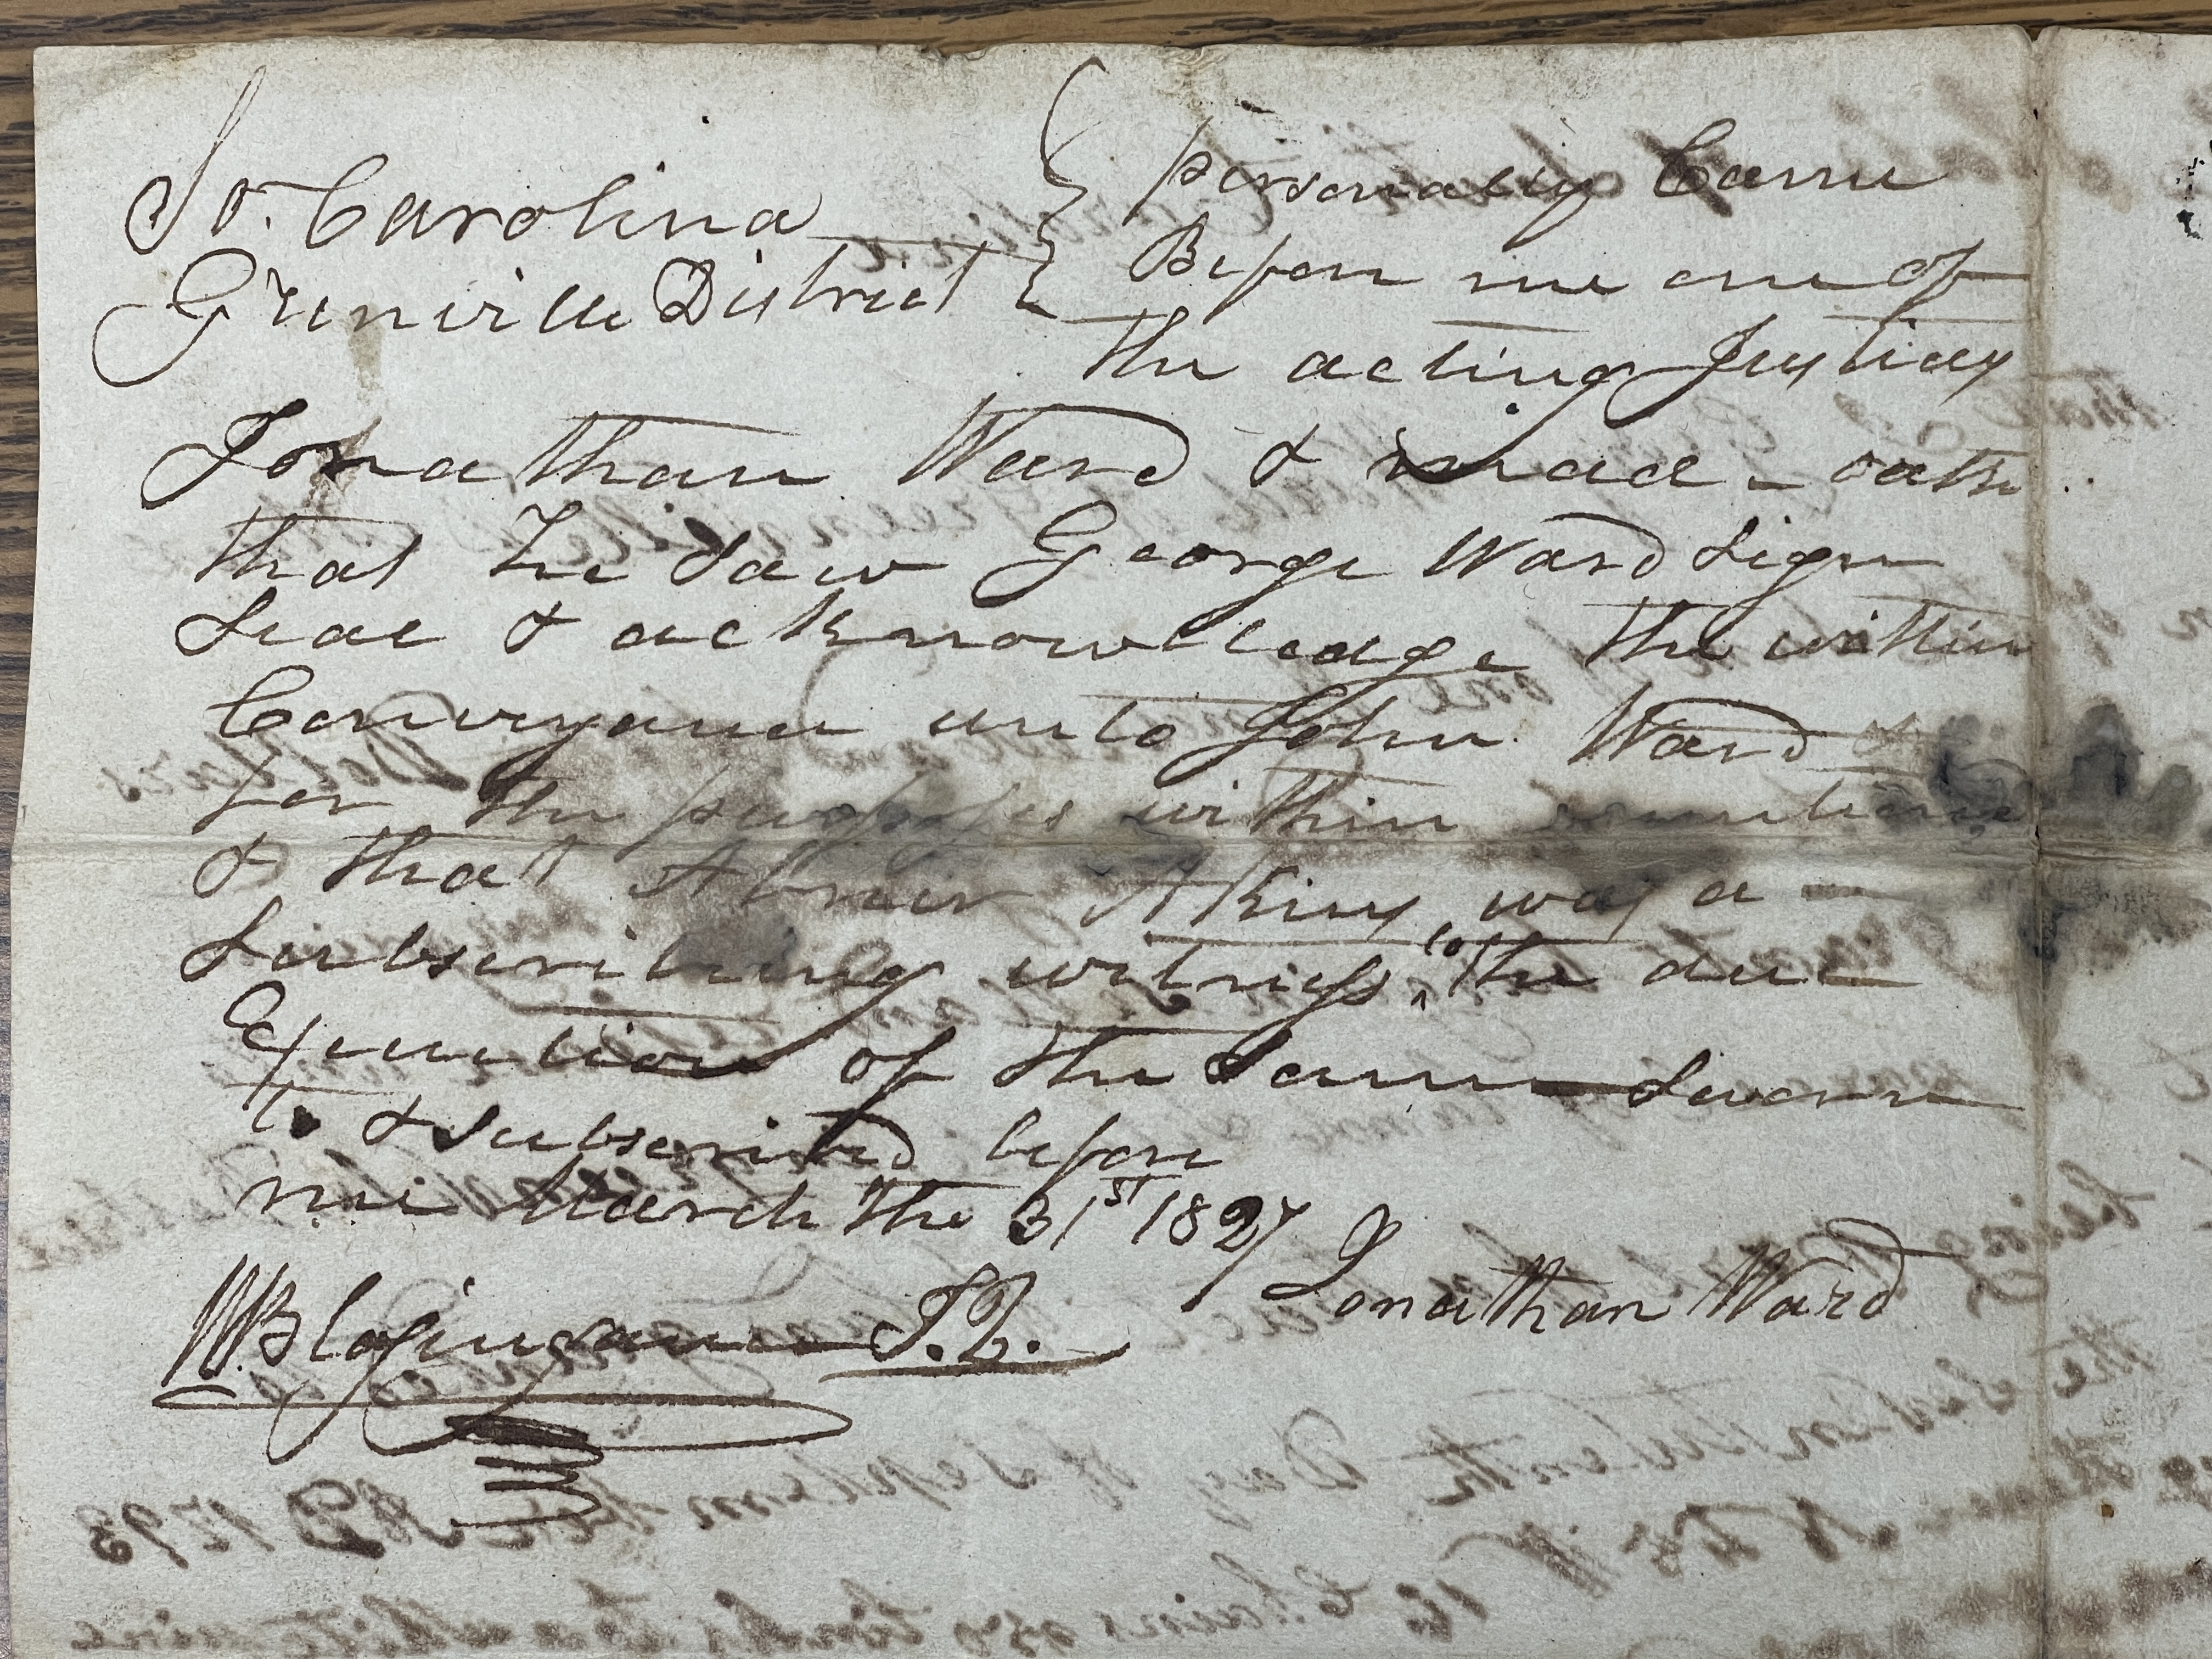 So. Carolina
Grenville District
personally Came
Before me one of
the acting Justices
Jonathan Ward & made oath
that he saw George Ward Sign
Seal & acknowledge the within
Conveyance unto John Ward
for the purposes within
& that Abner Akins was a
Subscribing witness to the due
Execution of the Same Sworn
to & subscribed before
me March the 31st 1827
Jonathan Ward